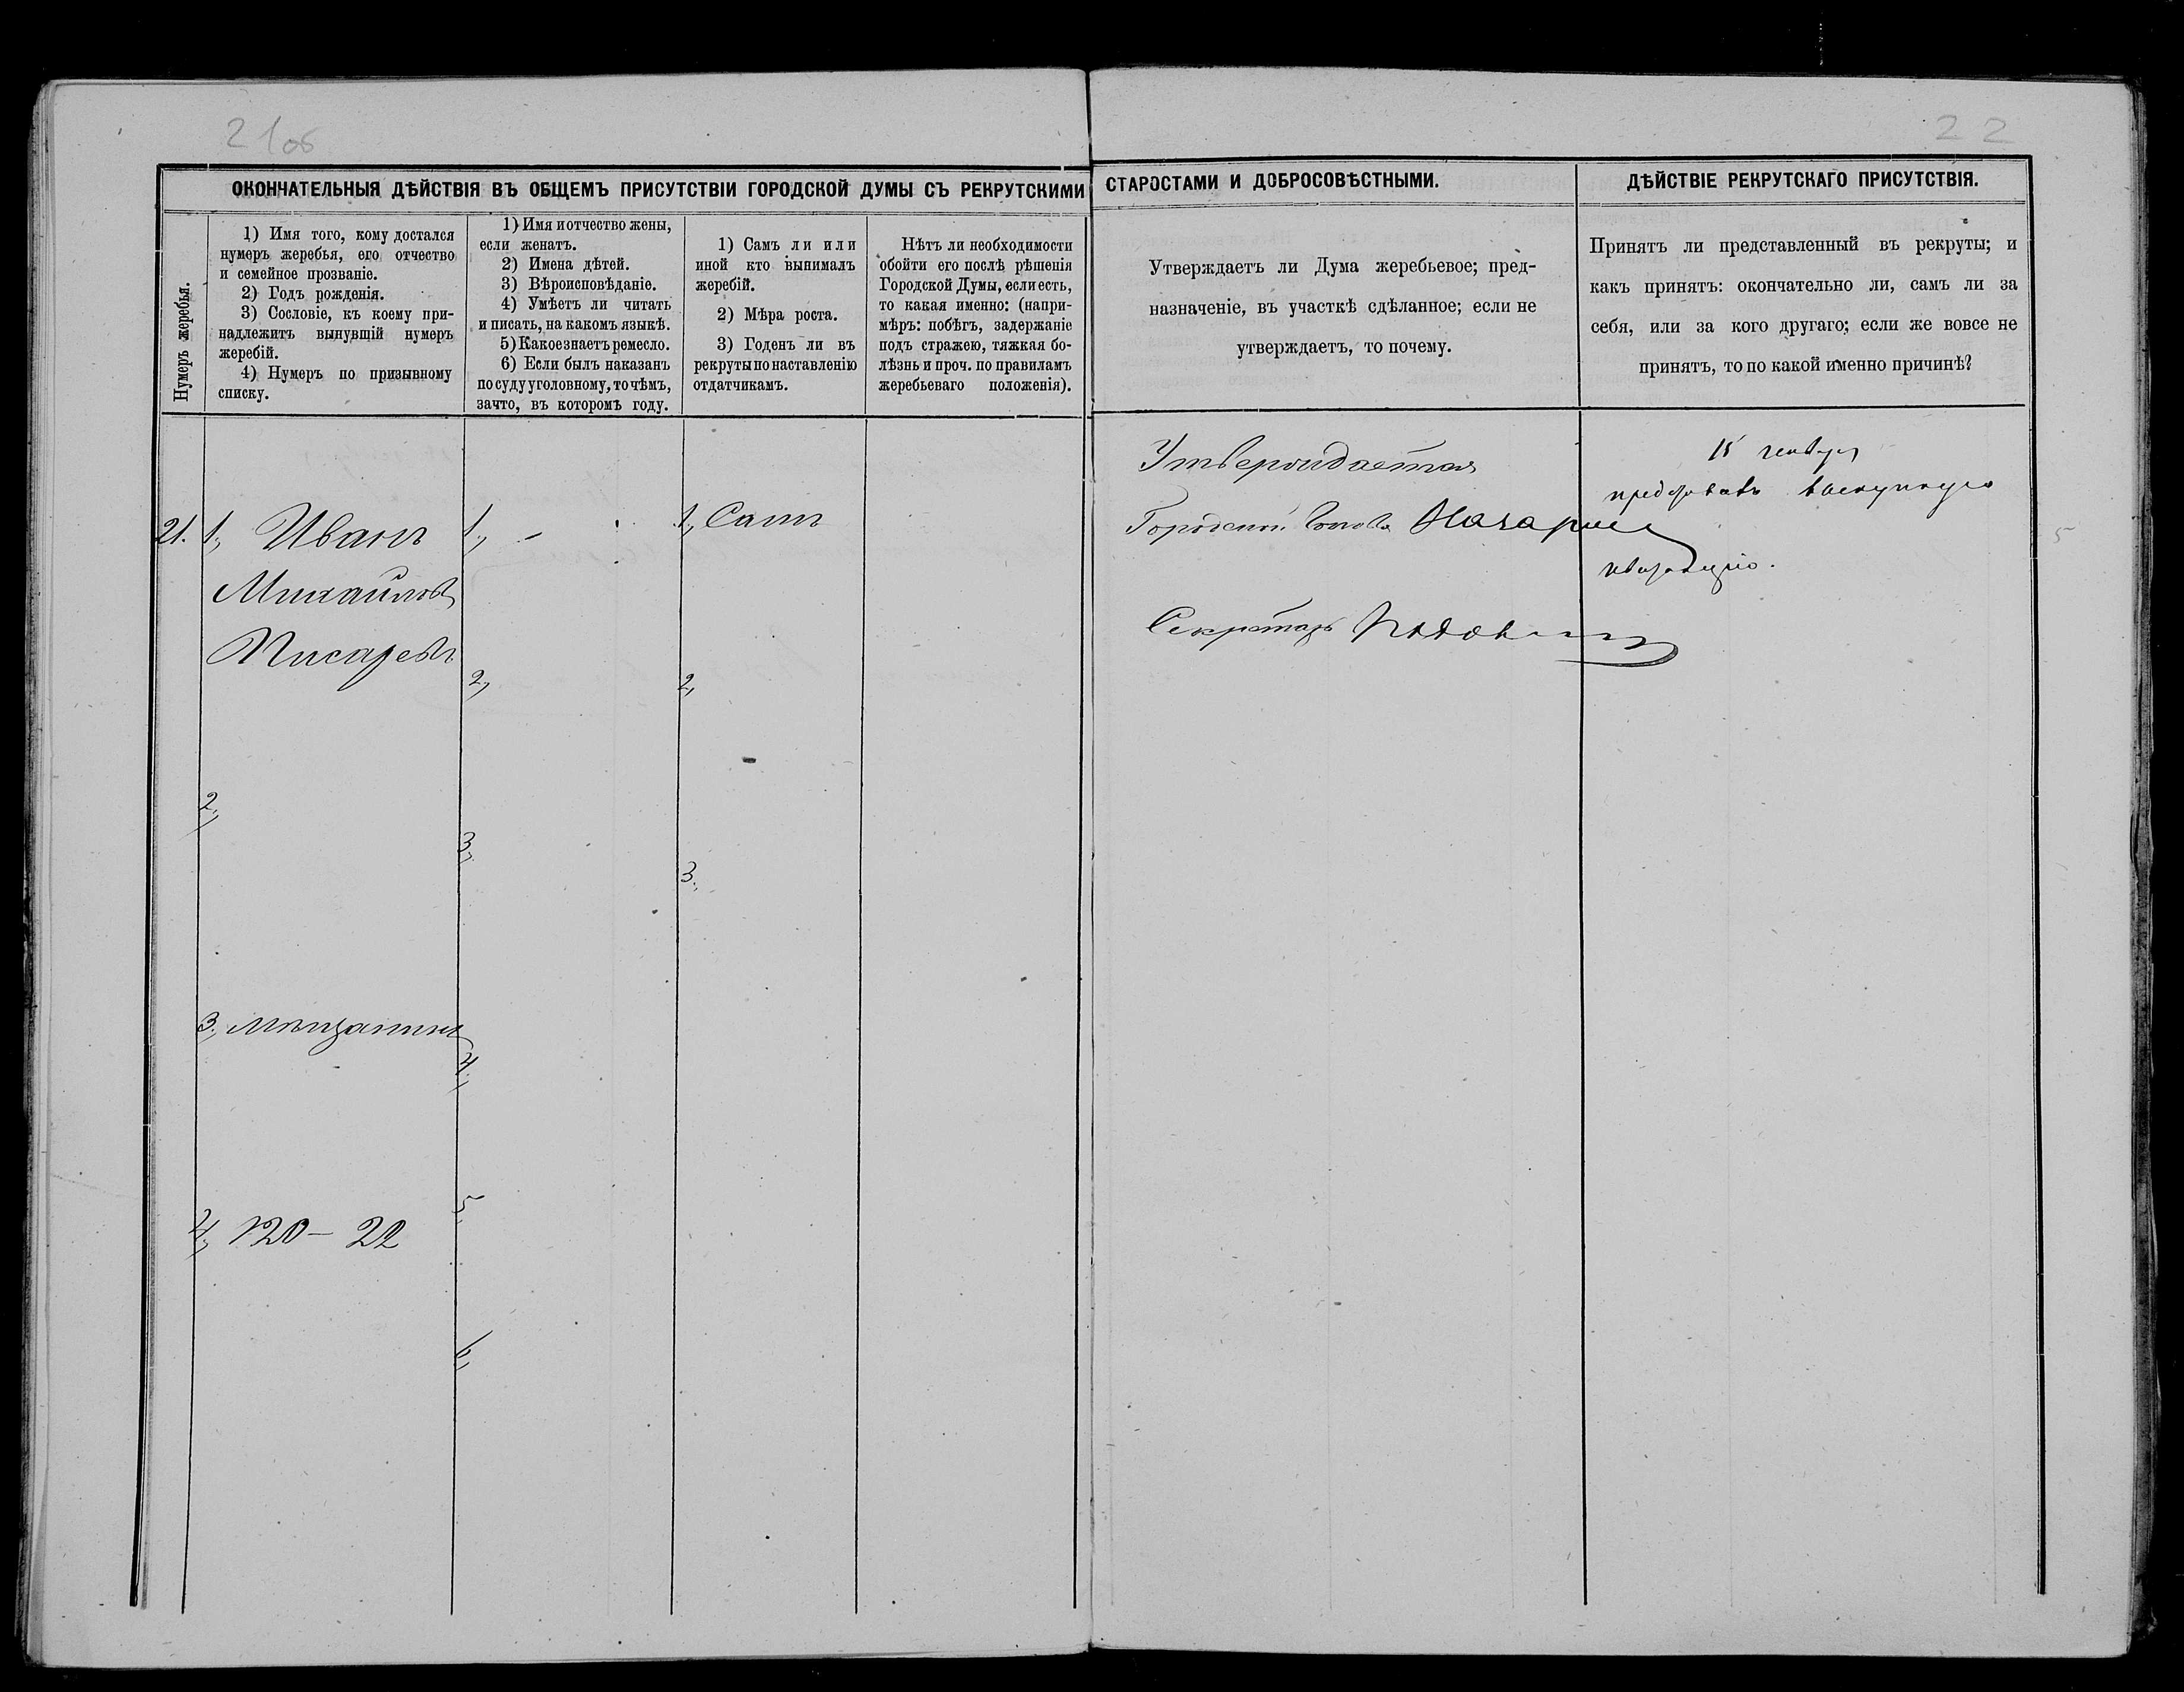 21об
22
ОКОНЧАТЕЛЬНЫЯ ДѢЙСТВІЯ ВЪ ОБЩЕМЪ ПРИСУТСТВІИ ГОРОДСКОЙ ДУМЫ СЪ РЕКРУТСКИМИ СТАРОСТАМИ И ДОБРОСОВѢСТНЫМИ.
ДѢЙСТВІЕ РЕКРУТСКАГО ПРИСУТСТВІЯ.
Нумеръ жеребья.
1) Имя того, кому достался
нумеръ жеребья, его отчество
и семейное прозваніе.
2) Годъ рожденія.
3) Сословіе, къ коему при-
надлежитъ вынувшій нумеръ
жеребій.
4) Нумеръ по призывному
списку.
1) Имя и отчество жены,
если женатъ.
2) Имена дѣтей.
3) Вѣроисповѣданіе.
4) Умѣетъ ли читать
и писать, на какомъ языкѣ.
5) Какое знаетъ ремесло.
6) Если былъ наказанъ
по суду уголовному, то чѣмъ,
за что, въ которомъ году.
1) Самъ ли или
иной кто вынималъ
жеребій.
2) Мѣра роста.
3) Годенъ ли въ
рекруты по наставленію
отдатчикамъ.
Нѣтъ ли необходимости
обойти его послѣ рѣшенія
Городской Думы, если есть,
то какая именно: (напри-
мѣръ: побѣгъ, задержаніе
подъ стражею, тяжкая бо-
лѣзнь и проч. по правиламъ
жеребьеваго положенія).
Утверждаетъ ли Дума жеребьевое; пред-
назначеніе, въ участкѣ сдѣланное; если не
утверждаетъ, то почему.
Принятъ ли представленный въ рекруты; и
какъ принятъ: окончательно ли, самъ ли за
себя, или за кого другаго; если же вовсе не
принятъ, то по какой именно причинѣ?
21.
1., Иванъ
Михайловъ
Писаревъ
2.,
3., мѣщанинъ
4., 120 — 22
1., -
2,
3,
4.,
5.
6.,
1., Самъ
2,
3.,
Утверждается
Городской Голова
Секретарь
15 генваря
5